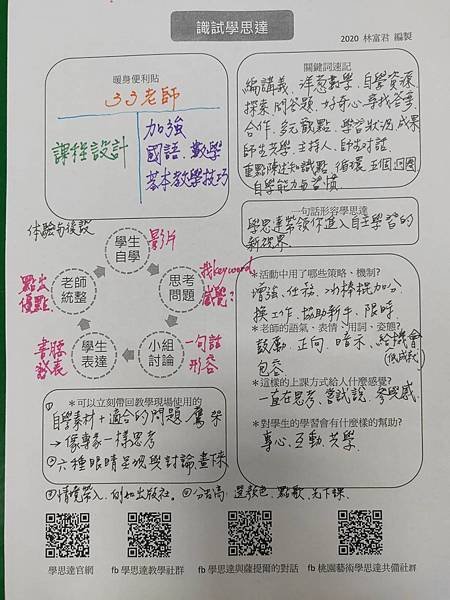 識試學思達
2020 林富君 編製
暖身便利貼
33老師
課程設計
加強
國語、數學
基本教學技巧
關鍵詞速記
編講義、洋蔥數學、自學資源
探索、問答題、好奇心、尋找答案
合作、多元觀點、學習狀況、成果
師生共學、主持人、師生對話、
重點陳述知識點、循環、五個迴圈
自學能力與習慣
一句話形容學思達
學思達帶領你進入自主學習的
新視界
體驗為後設
學生
自學
影片
思考
問題
找keyword
感覺?
小組
討論
一句話
形容
學生
表達
書寫
發表
老師
統整
點出
優點
*活動中用了哪些策略、機制?
增強、任務、
加分、
換工作、協助新手、限時
*老師的語氣、表情、用詞、姿態?
鼓勵、正向、暗示、給機會
(低成就)
包容
*這樣的上課方式給人什麼感覺?
一直在思考、嘗試說、參與感
*對學生的學習會有什麼樣的幫助?
專心、互動、共學
*可以立刻帶回教學現場使用的
① 自學素材+適合的問題、鷹架
→像專家一樣思考
②六種眼睛呈現與討論畫下來
③情境帶入、例如出版社。④分高 選顏色、點歌、先下課
學思達官網
fb 學思達教學社群
fb 學思達與薩提爾的對話
fb 桃園藝術學思達共備社群